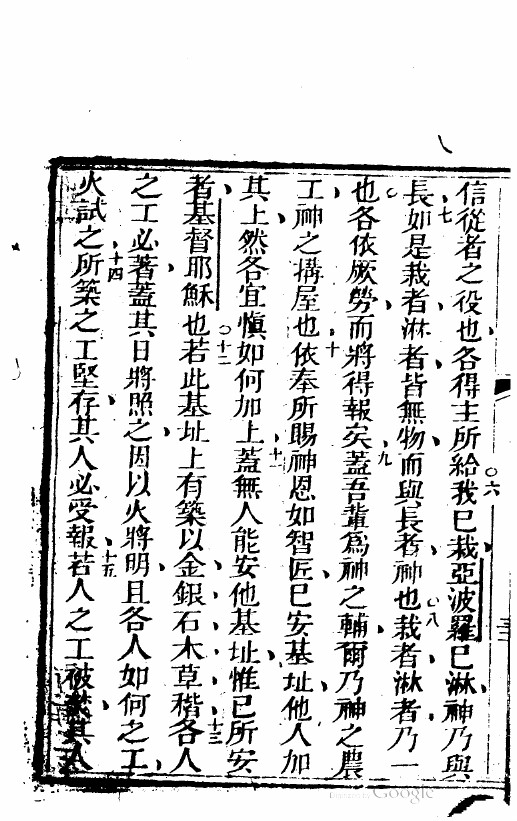 信從者之役也、各得主所給、○六我已栽、亞波羅已淋、神乃與
長、七如是栽者淋者皆無物、而與長者、神也、○八栽者淋者乃一
也、○各依厥勞而將得報矣、九蓋吾輩為神之輔、爾乃神之農
工、神之搆屋也、十依奉所賜神恩、十一如智匠已安基址、他人加
其上、然各宜慎如何加上、蓋無人能安他基址、惟已所安
者、基督耶穌也、○十二若此基址上有築以金、銀、石、木、草、稭、十三各人
之工必著、蓋其日將照之、因以火將明、且各人如何之工、
火試之、十四所築之工堅存、其人必受報、十五若人之工被焚、其人
三
Google